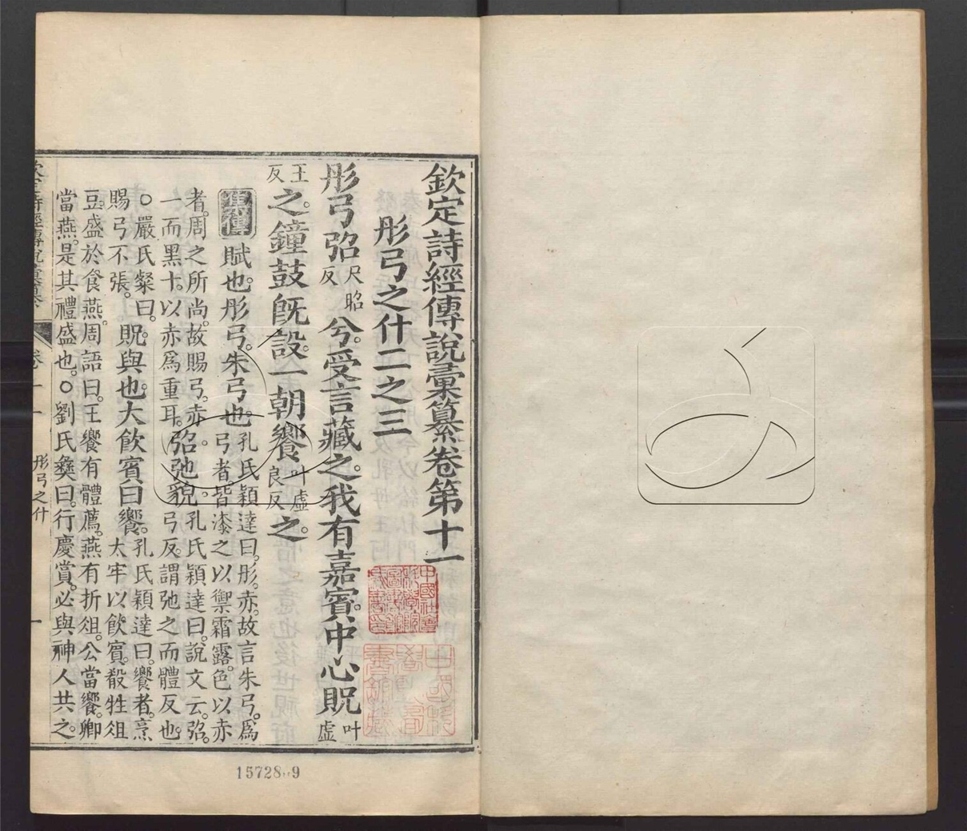 欽定詩經傳說彙纂卷第十一
彤弓之什二之三
彤弓弨尺昭反兮受言藏之我有嘉賓中心貺叶虛
王反之鐘鼓旣設一朝饗叶虛良反之
集傳賦也彤弓朱弓也孔氏穎達曰彤赤故言朱弓爲
弓者皆漆之以禦霜露色以赤
者周之所尚故賜弓赤
一而黑十以赤爲重耳弨弛貌孔氏穎達曰說文云弨
弓反謂弛之而體反也
○嚴氏粲曰
賜弓不張貺與也大飲賓曰饗孔氏穎達曰饗者烹
太牢以飲賓殽牲俎
豆盛於食燕周語曰王饗有體薦燕有折俎公當饗卿
當燕是其禮盛也○劉氏彝曰行慶賞必與神人共之
彤弓之什
一
15728 9